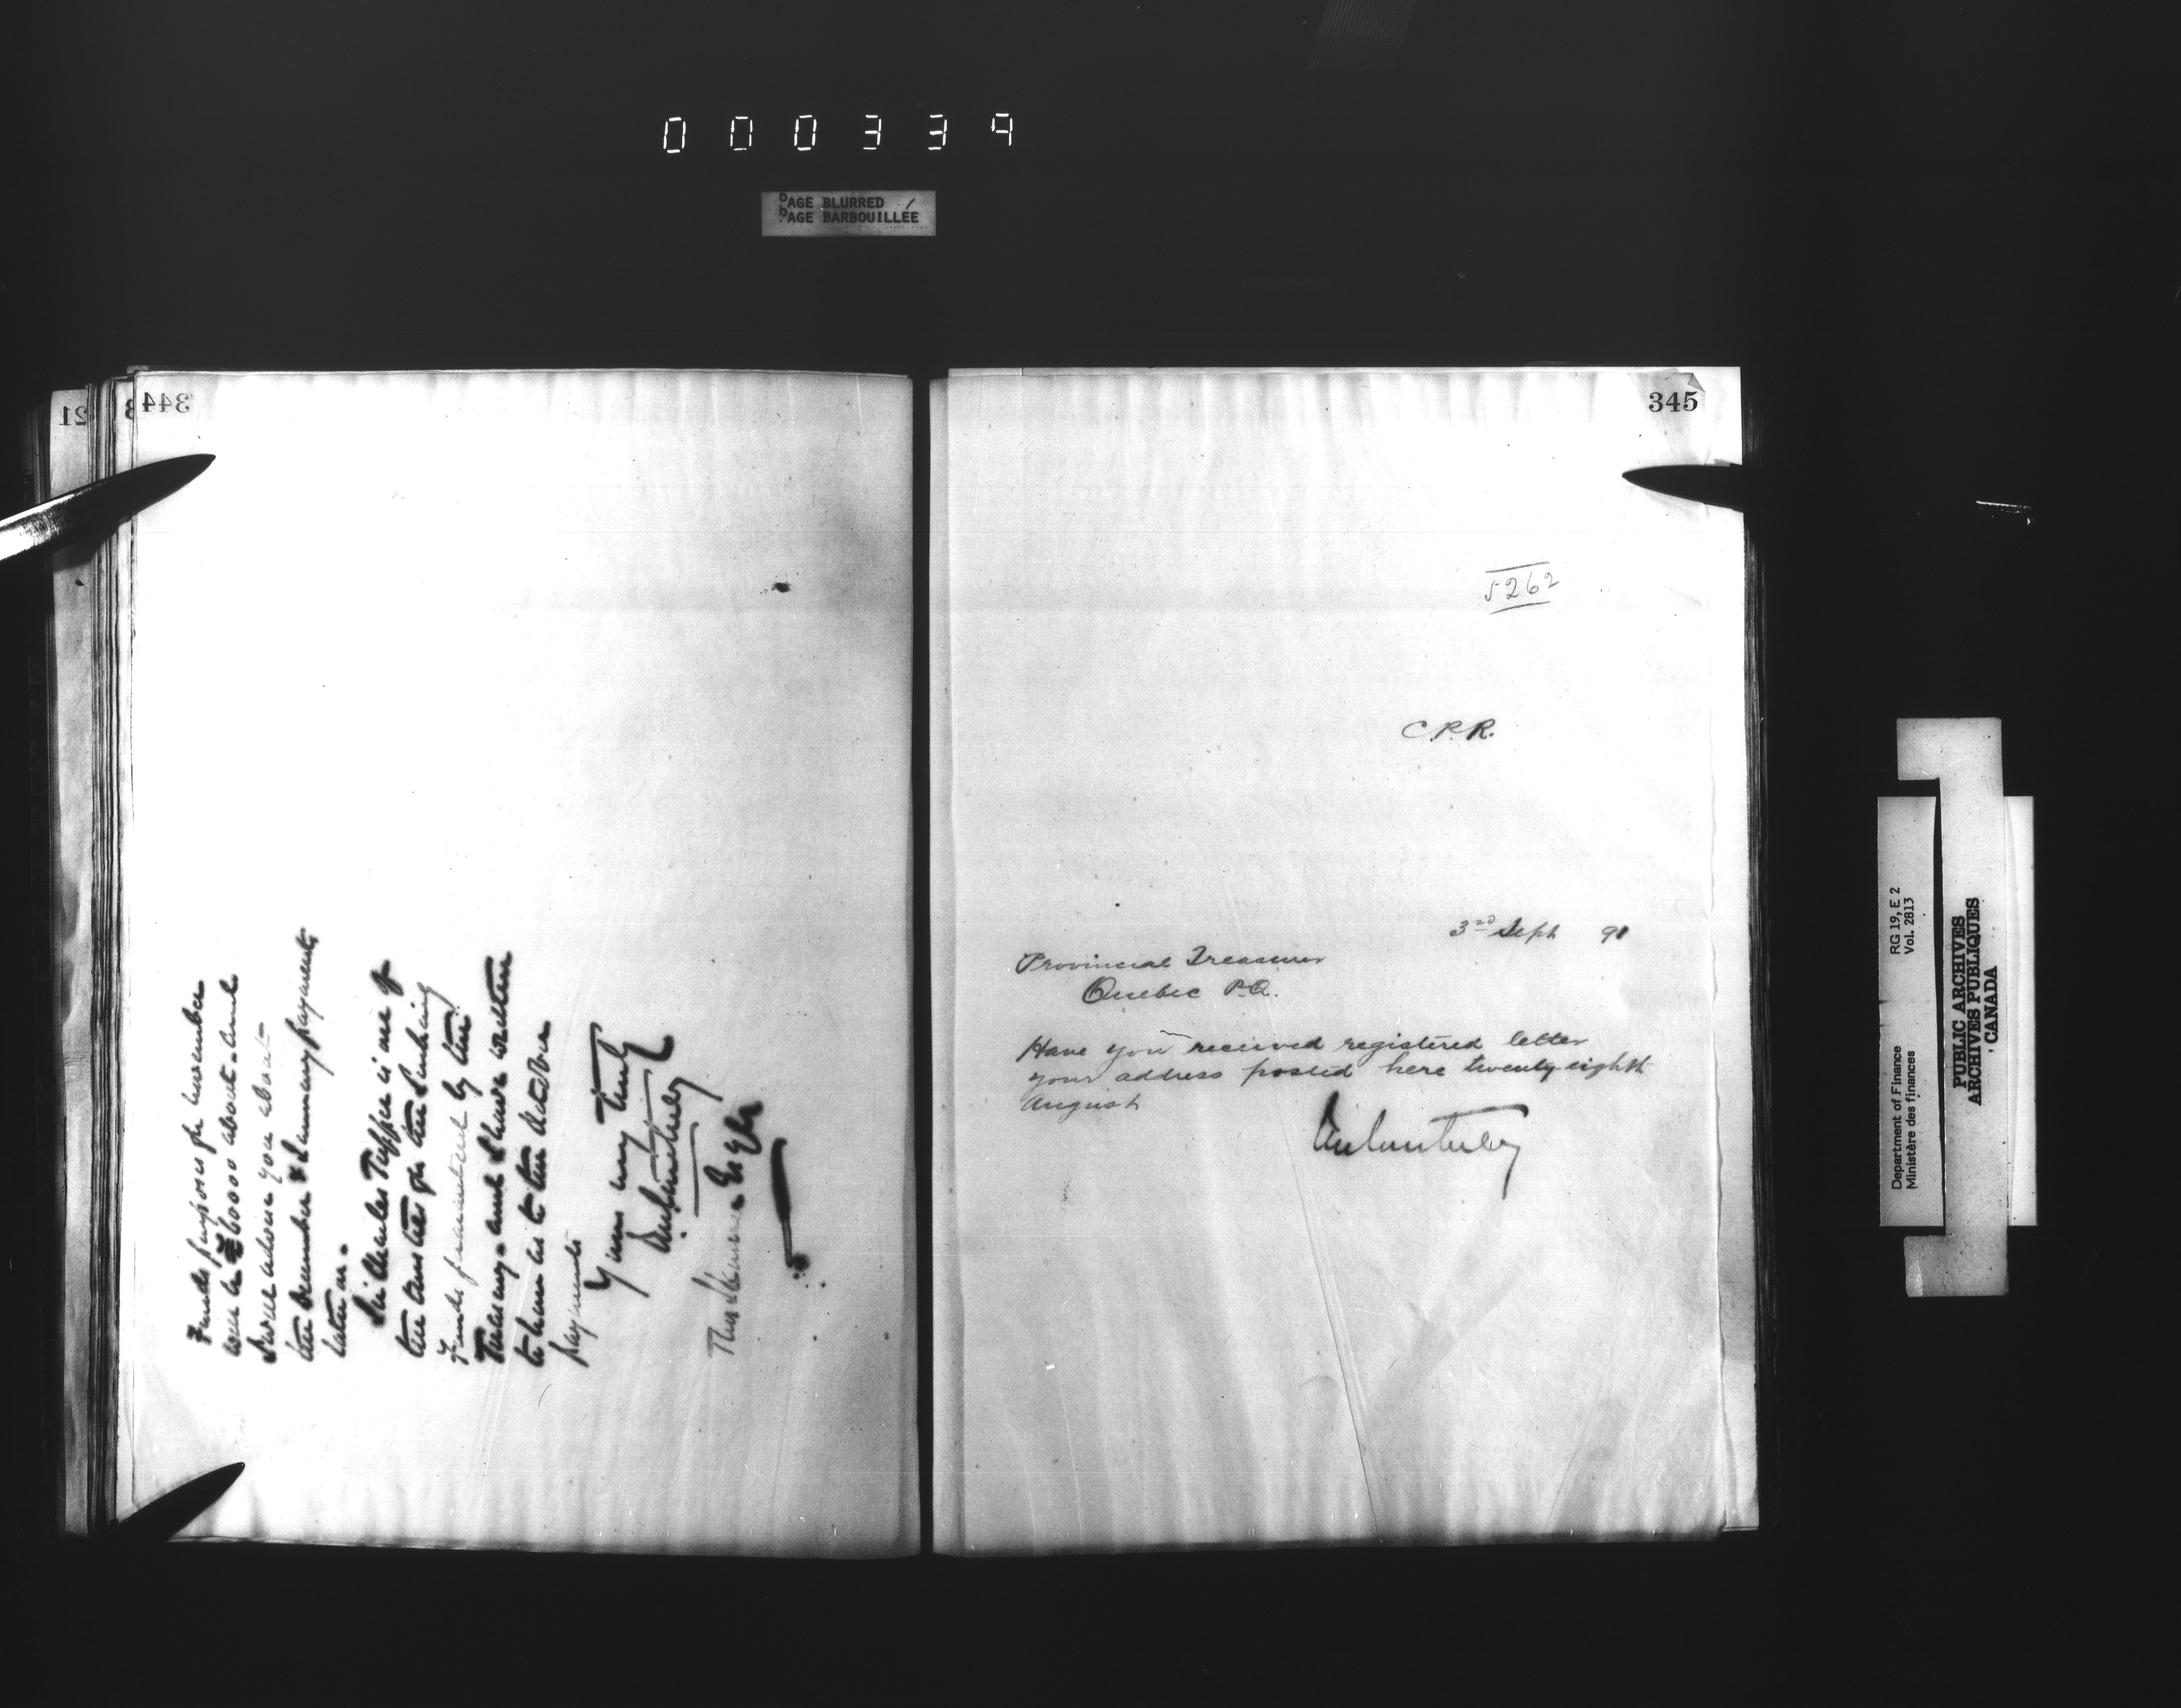 000339
PAGE BLURRED
PAGE BARBOUILLÉE
21
344
Funds purposes for November
will be £60000 about and
I will advise you about
the December & January payments
later on.
Sir Charles Tupper is one of
the trustees for the Sinking
Funds
by the
Treasury and I have written
to him as to the October
payments
Yours very truly
Thos Skinner Esqre
345
5262
C.P.R.
3rd Sept 91
Provincial Treasurer
Quebec P.Q.
Have you received registered letter
your address posted here twenty-eighth
August
RG 19, E 2
Vol. 2813
Department of Finance
Ministère des finances
PUBLIC ARCHIVES
ARCHIVES PUBLIQUES
CANADA